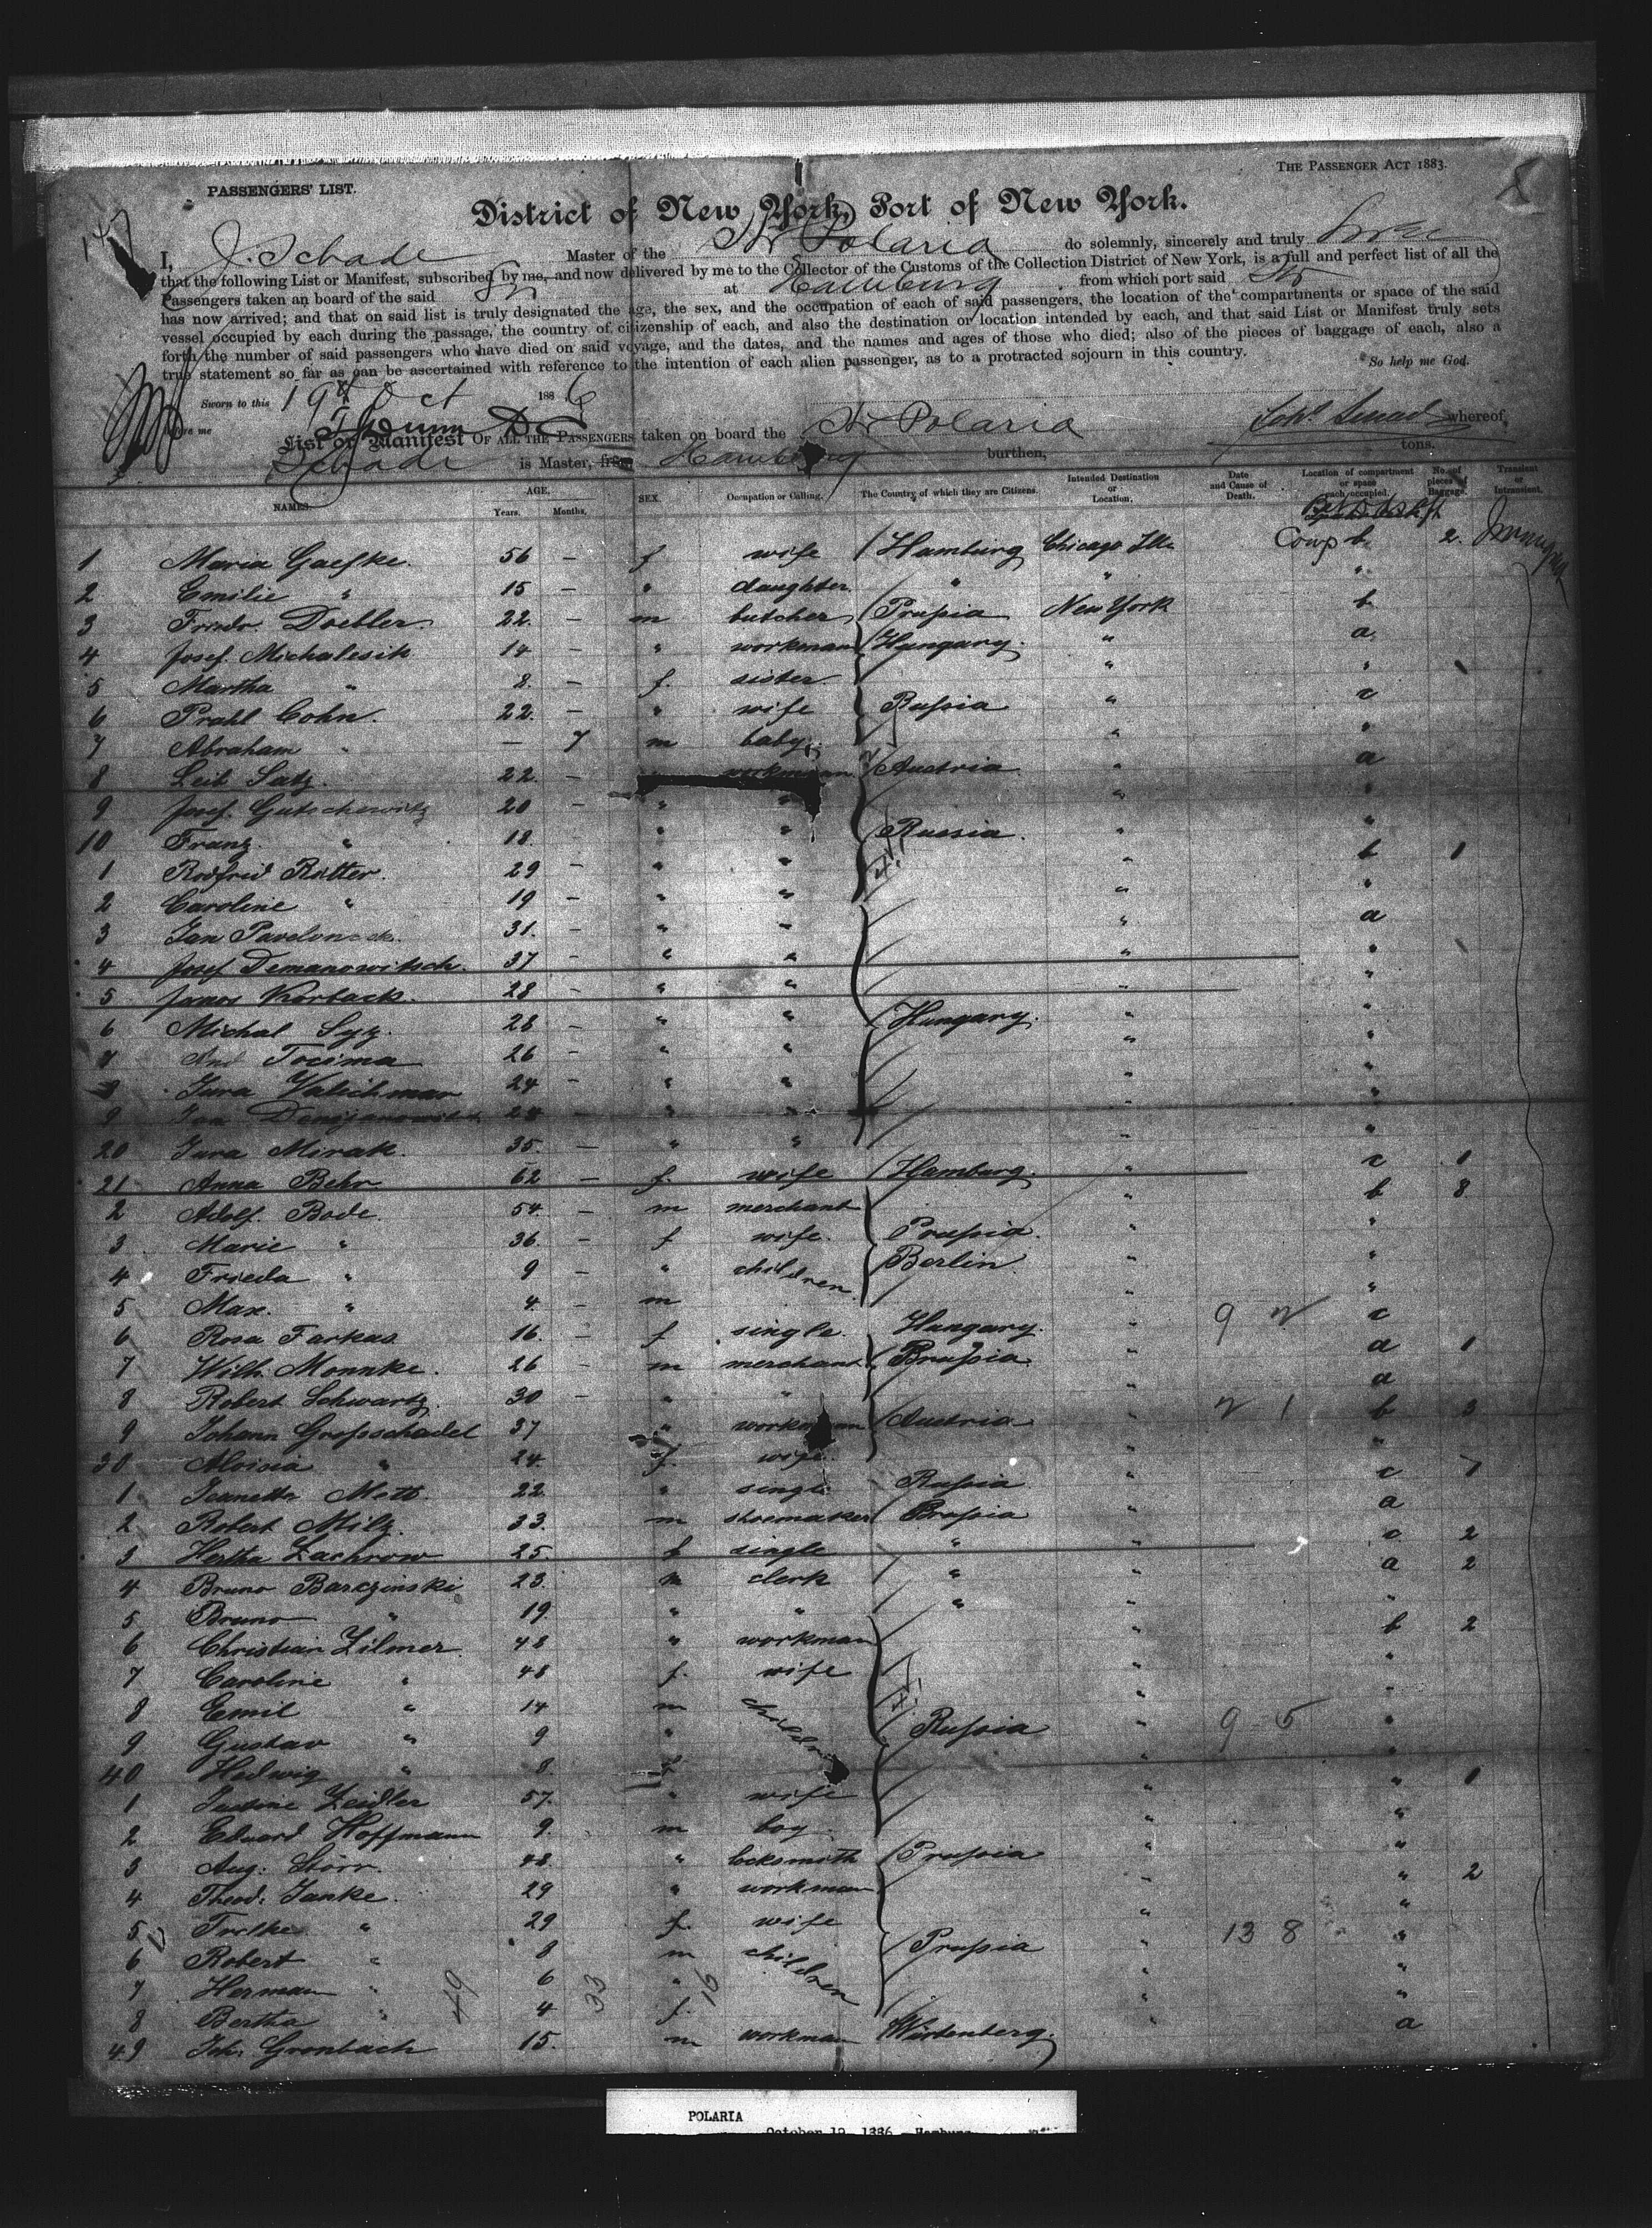 THE PASSENGER ACT 1883.
PASSENGERS' LIST.
District of New York, Port of New York.
I, J. Schade Master of the Str Polaria do solemnly, sincerely and truly
that the following List or Manifest, subscribed by me, and now delivered by me to the Collector of the Customs of the Collection District of New York, is a full and perfect list of all the
Passengers taken on board of the said Str at Hamburg from which port said Str
has now arrived; and that on said list is truly designated the age, the sex, and the occupation of each of said passengers, the location of the compartments or space of the said
vessel occupied by each during the passage, the country of citizenship of each, and also the destination or location intended by each, and that said List or Manifest truly sets
forth the number of said passengers who have died on said voyage, and the dates, and the names and ages of those who died; also of the pieces of baggage of each, also a
true statement so far as can be ascertained with reference to the intention of each alien passenger, as to a protracted sojourn in this country. So help me God.
Sworn to this 19th Oct 1886
Before me
List or Manifest OF ALL THE PASSENGERS taken on board the Str Polaria whereof
Schade is Master, from Hamburg burthen, tons.
NAMES. AGE. Years. Months. SEX. Occupation or Calling. The Country of which they are Citizens. Intended Destination or Location. Date and Cause of Death. Location of compartment or space each occupied. No. of pieces of Baggage. Transient or Intransient.
1 Maria Gaefke. 56 – f wife Hamburg Chicago Ills Comp b. 2.
2. Emilie " 15 – " daughter " " "
3 Friedr. Doebler. 22. – m butcher Prussia New York b
4 Josef Michalesik 14 – " workman Hungary. " a.
5 Martha " 8. – f. sister. " "
6 Prahl Cohn. 22. – " wife Russia " c
7 Abraham " – 7 m baby. " "
8 Leib Satz. 22. – workman Austria. " a
9 Josef Gutschewitz 20 – " " " "
10 Franz. " 18. " " Russia. " "
1 Rodfrid Rutter. 29 – " " " b 1
2 Caroline " 19 – " " " "
3 Jan 31. – " " " a
4 Josef Demanowitsch. 37 – " " " "
5 Janos Korback. 28 – " " " "
6 Michal Syz. 28 – " " Hungary. " "
7 Tocima 26 – " " " "
8 Jura Valichmar 24 – " " " "
9 28 – " " "
20 Jura Mirak. 35. – " " " "
21 Anna Behr 62 – f. wife Hamburg. " c 1
2 Adolf. Bode. 54. – m merchant " b 8
3 Marie " 36. – f wife. Prussia. " "
4 Frieda " 9 – " children Berlin " "
5 Max. " 4. – m " "
6 Rosa Farkas 16 – f single. Hungary. " 9 2 c
7 Wilh. Monnke. 26 – m merchant Prussia " a 1
8 Robert Schwartz. 30 – " " " a
9 Johann Grossschadel 37 " workman Austria " 2 1 b 3
30 Aloisia " 24. f. wife. " "
1 Jeanette Mett. 22 " single Russia " c 1
2 Robert Milz. 33. m shoemaker Prussia " a
3 Hertha Lachrow 25. f single " " c 2
4 Bruno Barczinski 23. m clerk " " a 2
5 Bruno " 19. " " " " "
6 Christian Zilmer 48 " workman " b 2
7 Caroline " 48 f. wife " "
8 Emil " 14 m children " "
9 Gustav " 9 " Russia " 9 5 "
40 Hedwig " 8. f " "
1 Justine Zeidler 57. " wife " " 1
2 Eduard Hoffmann 9. m boy " "
3 Aug: Störr. 48. " locksmith Prussia " "
4 Theod: Janke. 29 " workman " " 2
5 " 29 f. wife " "
6 Robert " 8 m children Prussia " 13 8 "
7 Herman " 6 " " "
8 Bertha " 4 f. " "
49 Joh: Gronbach 15. m workman Würtenberg. a
49 33 16
POLARIA
October 19, 1886 Hamburg